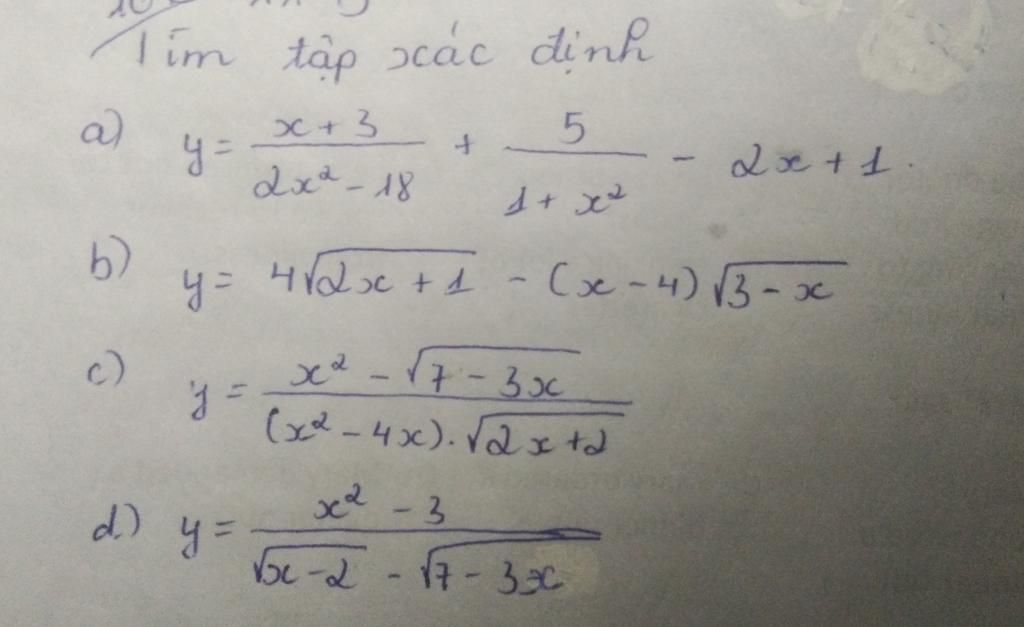 Tìm tập xác định
a) y = \frac{x+3}{2x² - 18} + \frac{5}{1 + x²} - 2x + 1.
b) y = 4√(2x + 1) - (x - 4)√(3 - x)
c) y = \frac{x² - √(7 - 3x)}{(x² - 4x).√(2x + 2)}
d) y = \frac{x² - 3}{√(x - 2) - √(7 - 3x)}